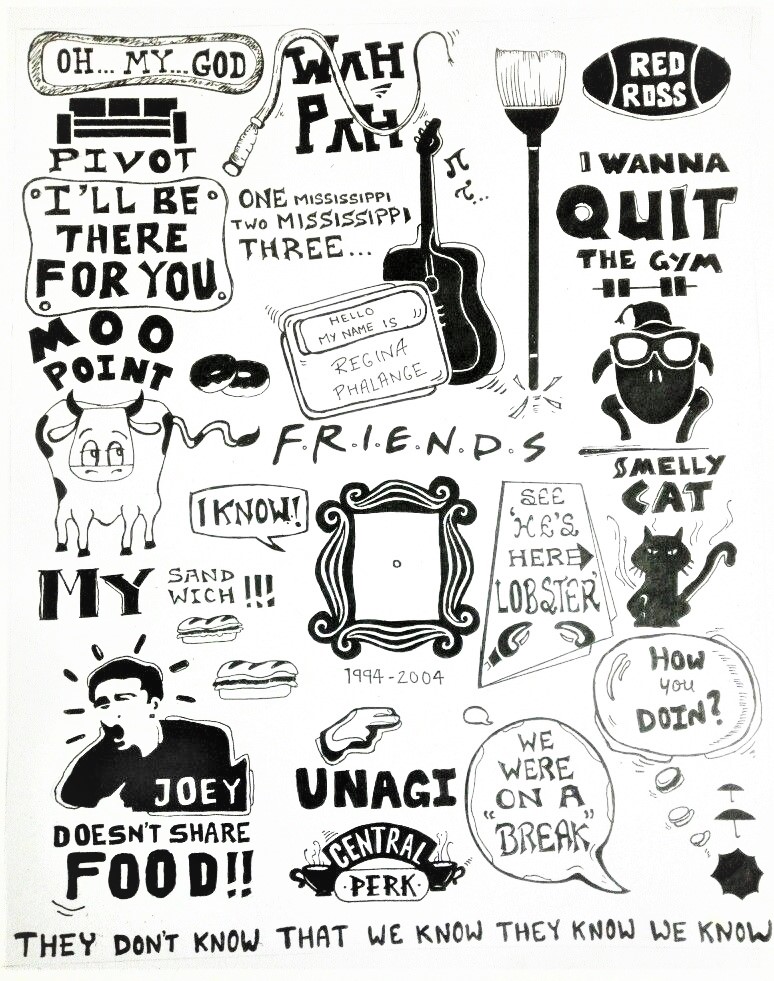 OH... MY... GOD
WAH
PAH
RED
ROSS
PIVOT
I'LL BE
THERE
FOR YOU
ONE MISSISSIPPI
TWO MISSISSIPPI
THREE...
I WANNA
QUIT
THE GYM
HELLO
MY NAME IS
REGINA
PHALANGE
MOO
POINT
F.R.I.E.N.D.S
SMELLY
CAT
I KNOW!
SEE
'HE'S
HERE
LOBSTER'
MY SAND
WICH !!!
1994-2004
HOW
you
DOIN?
JOEY
DOESN'T SHARE
FOOD!!
UNAGI
CENTRAL
PERK
WE
WERE
ON A
"BREAK"
THEY DON'T KNOW THAT WE KNOW THEY KNOW WE KNOW